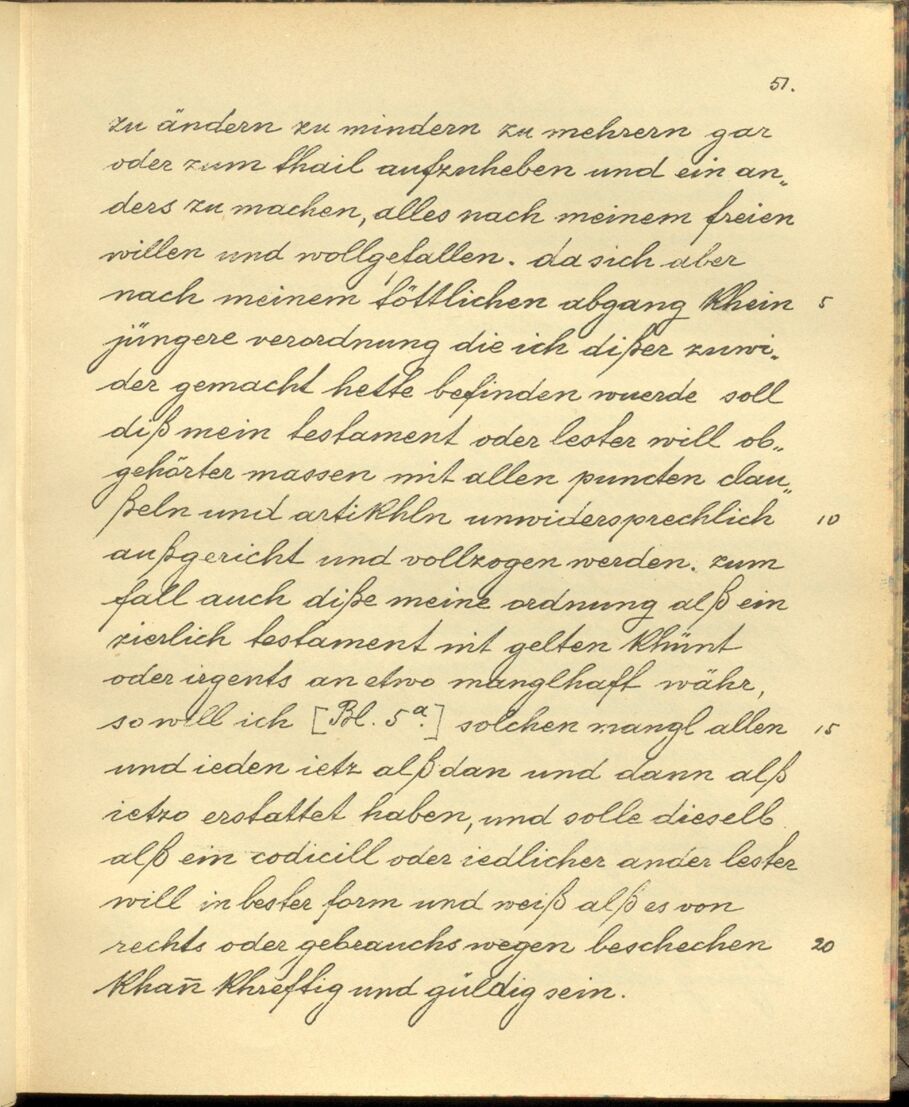 51.
zu ändern zu mindern zu mehrern gar
oder zum thail aufzuheben und ein an„
ders zu machen, alles nach meinem freien
willen und wollgefallen. da sich aber
nach meinem töttlichen abgang khein 5
jüngere verordnung die ich dißer zuwi„
der gemacht hette befinden wuerde soll
diß mein testament oder lester will ob„
gehörter massen mit allen puncten clau„
ßeln und artikhln unwidersprechlich 10
außgericht und vollzogen werden. zum
fall auch diße meine ordnung alß ein
zierlich testament nit gelten khünt
oder irgents an etwo manglhaft währ,
so will ich [Bl. 5a.] solchen mangl allen 15
und ieden ietz alß dan und dann alß
ietzo erstattet haben, und solle dieselb
alß ein codicill oder iedlicher ander lester
will in bester form und weiß alß es von
rechts oder gebrauchs wegen beschechen 20
khan̄ khreftig und güldig sein.